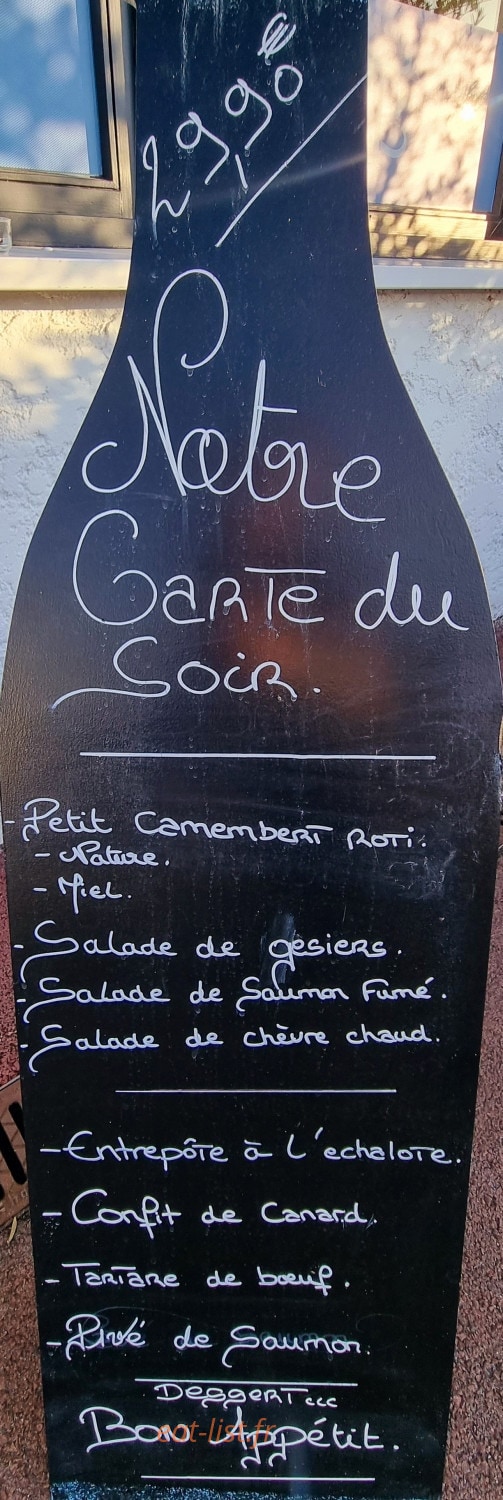 29,90€
Notre
Carte du
Soir.
- Petit Camembert Roti.
- Nature.
- Miel.
- Salade de gesiers.
- Salade de Saumon Fumé.
- Salade de chèvre chaud.
- Entrepôte à l'echalote.
- Confit de Canard.
- Tartare de bœuf.
- Pavé de Saumon.
Dessert...
Bon Appétit.
eat-list.fr